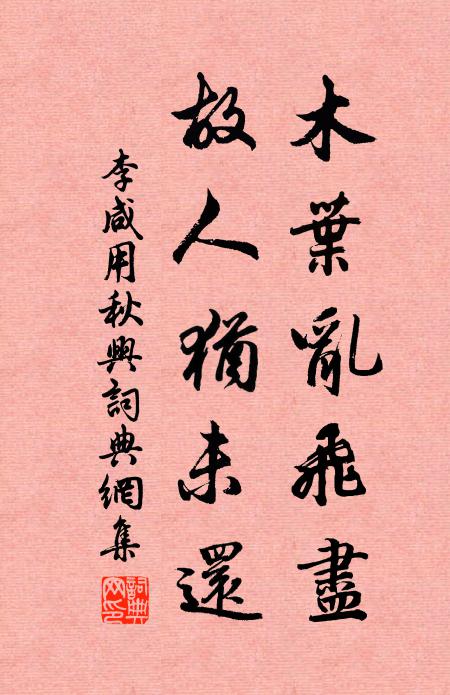 木葉亂飛盡
故人猶未還
李咸用秋興詞典網集
詞典網印